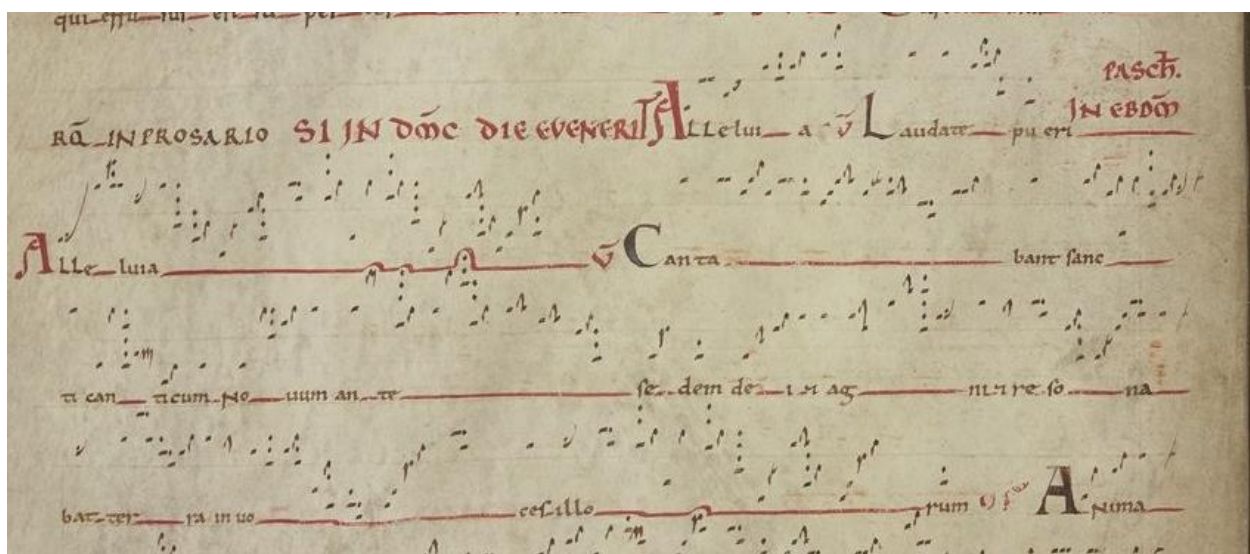 qui effu
RQ̄ INPROSARIO SI IN DM̄C DIE EVENERIT Alleluia v̄ Laudate pueri IN EBDM̄ PASCH̄.
Alleluia v̄ Canta bant sanc
ti can ticum no uum an te se dem de i et ag ni et re so na
bat ter ra in uo ces illo rum Anima